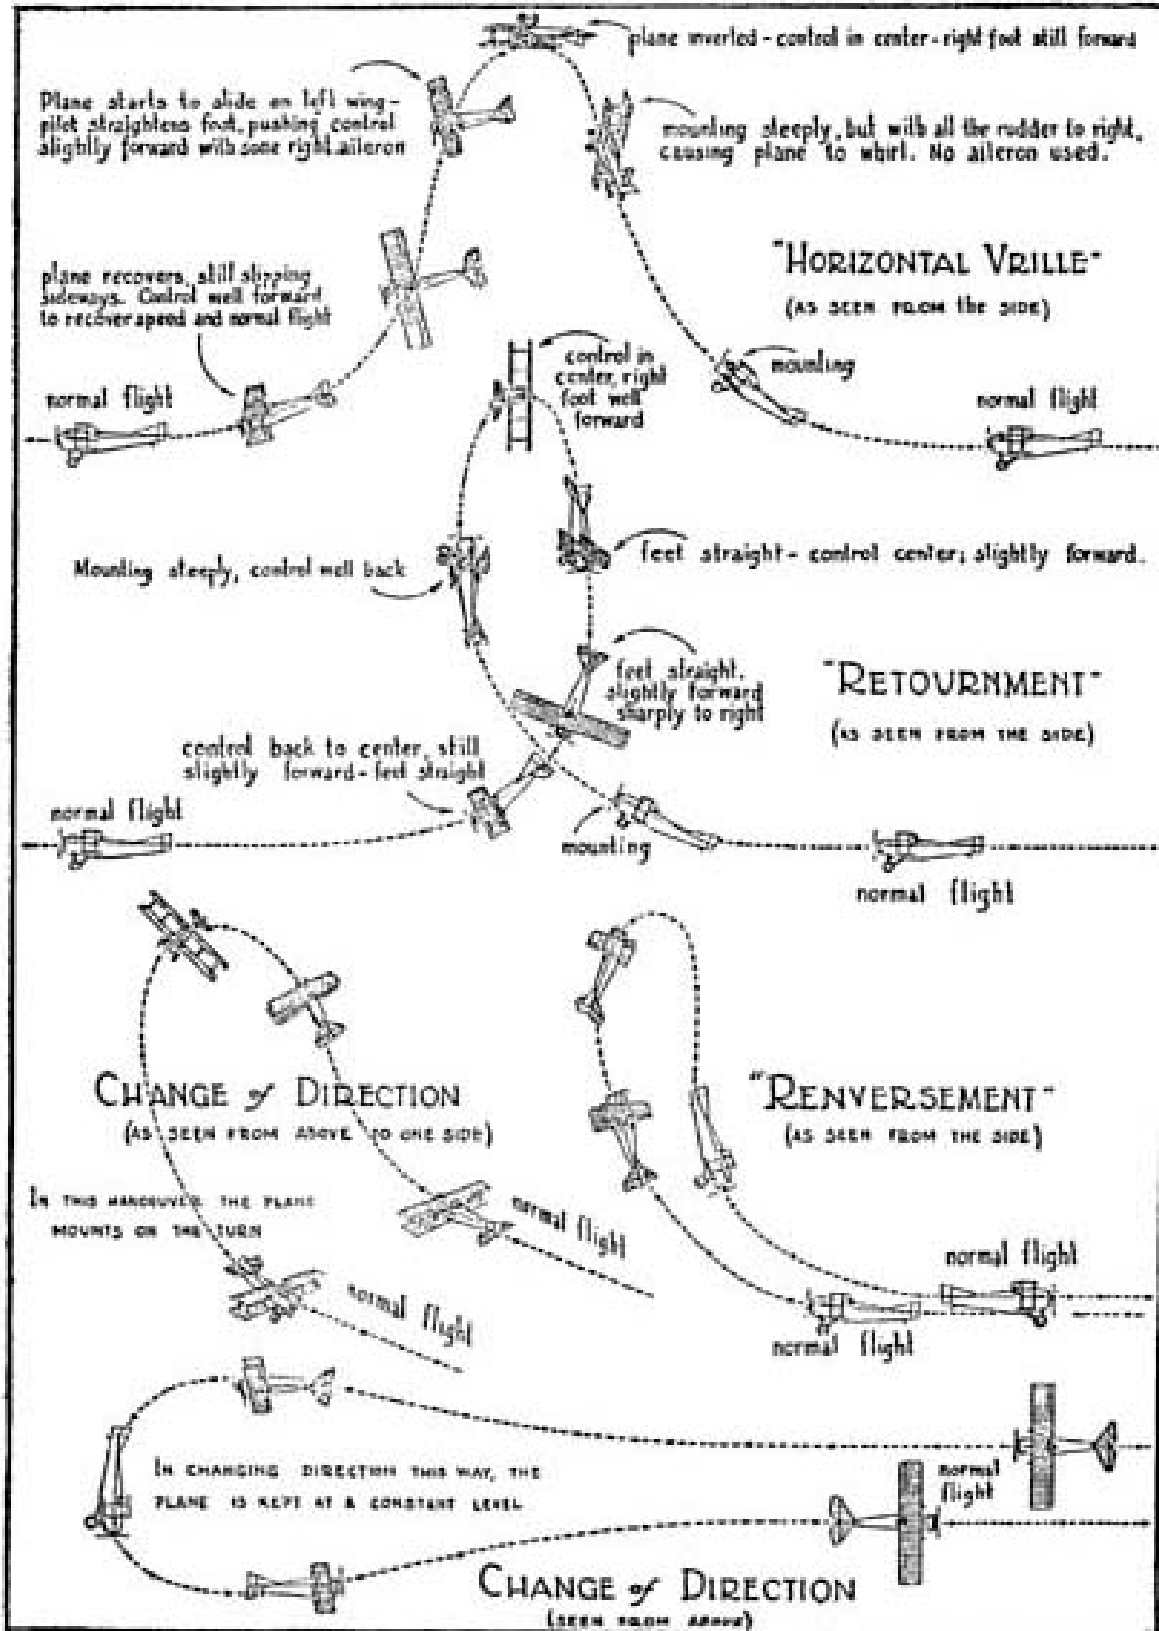 plane inverted - control in center - right foot still forward
Plane starts to slide on left wing -
pilot straightens foot, pushing control
slightly forward with some right aileron
mounting steeply, but with all the rudder to right,
causing plane to whirl. No aileron used.
"HORIZONTAL VRILLE"
(AS SEEN FROM the SIDE)
plane recovers, still slipping
sideways. Control well forward
to recover speed and normal flight
normal flight
control in
center, right
foot well
forward
mounting
normal flight
Mounting steeply, control well back
feet straight - control center; slightly forward.
feet straight,
slightly forward
sharply to right
"RETOURNMENT"
(AS SEEN FROM THE SIDE)
control back to center, still
slightly forward - feet straight
normal flight
mounting
normal flight
CHANGE of DIRECTION
(AS SEEN FROM ABOVE TO ONE SIDE)
IN THIS MANOEUVER THE PLANE
MOUNTS ON THE TURN
normal flight
normal flight
"RENVERSEMENT"
(AS SEEN FROM THE SIDE)
normal flight
normal flight
IN CHANGING DIRECTION THIS WAY, THE
PLANE IS KEPT AT A CONSTANT LEVEL
normal
flight
CHANGE of DIRECTION
(SEEN FROM ABOVE)